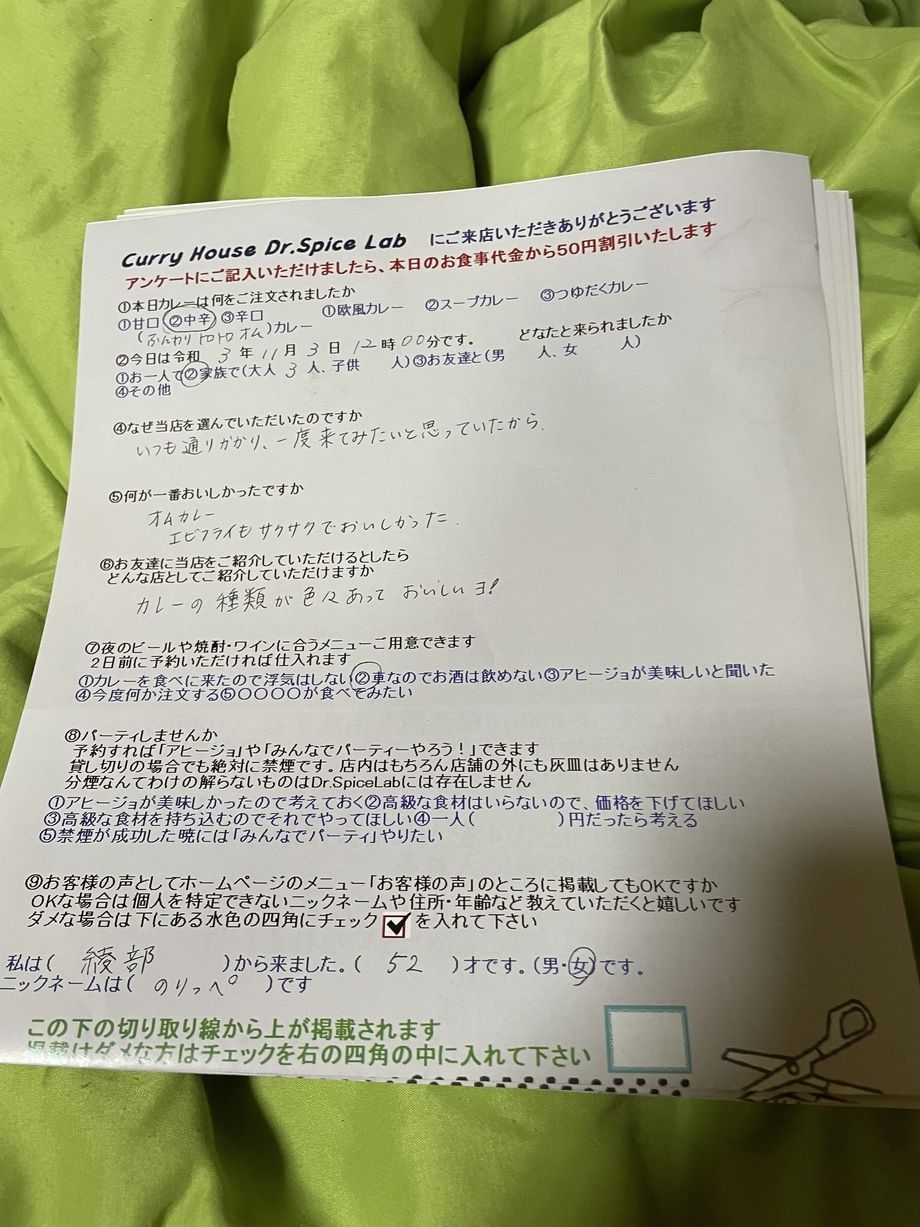 Curry House Dr.Spice Lab にご来店いただきありがとうございます
アンケートにご記入いただけましたら、本日のお食事代金から50円割引いたします
①本日カレーは何をご注文されましたか
①甘口 ②中辛 ③辛口 ①欧風カレー ②スープカレー ③つゆだくカレー
(ふんわりトロトロオム)カレー
②今日は令和 3 年 11 月 3 日 12 時 00 分です。 どなたと来られましたか
①お一人で②家族で(大人 3 人、子供 人)③お友達と(男 人、女 人)
④その他
④なぜ当店を選んでいただいたのですか
いつも通りがかり、一度来てみたいと思っていたから.
⑤何が一番おいしかったですか
オムカレー
エビフライもサクサクでおいしかった.
⑥お友達に当店をご紹介していただけるとしたら
どんな店としてご紹介していただけますか
カレーの種類が色々あっておいしいヨ!
⑦夜のビールや焼酎・ワインに合うメニューご用意できます
2日前に予約いただければ仕入れます
①カレーを食べに来たので浮気はしない②車なのでお酒は飲めない③アヒージョが美味しいと聞いた
④今度何か注文する⑤〇〇〇〇が食べてみたい
⑧パーティしませんか
予約すれば「アヒージョ」や「みんなでパーティーやろう!」できます
貸し切りの場合でも絶対に禁煙です。店内はもちろん店舗の外にも灰皿はありません
分煙なんてわけの解らないものはDr.SpiceLabには存在しません
①アヒージョが美味しかったので考えておく②高級な食材はいらないので、価格を下げてほしい
③高級な食材を持ち込むのでそれでやってほしい④一人( )円だったら考える
⑤禁煙が成功した暁には「みんなでパーティ」やりたい
⑨お客様の声としてホームページのメニュー「お客様の声」のところに掲載してもOKですか
OKな場合は個人を特定できないニックネームや住所・年齢など教えていただくと嬉しいです
ダメな場合は下にある水色の四角にチェック を入れて下さい
私は( 綾部 )から来ました。( 52 )才です。(男・女)です。
ニックネームは( のりっぺ )です
この下の切り取り線から上が掲載されます
掲載はダメな方はチェックを右の四角の中に入れて下さい